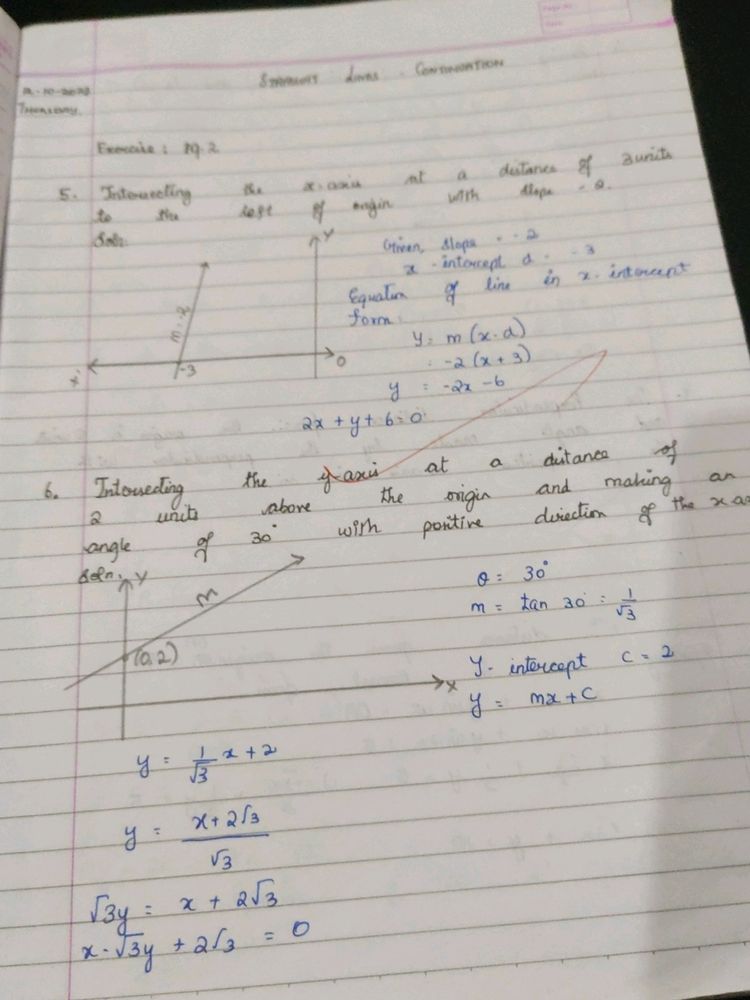 Page No.
Date
STRAIGHT LINES - CONTINUATION
Thursday.
Exercise : 10.2
5. Intersecting the x-axis at a distance of 3 units
to the left of origin with slope -2.
Soln.
Y
Given, slope = -2
x-intercept d = -3
Equation of line in x-intercept
form:
m = -2
y = m(x-d)
= -2(x+3)
X'
-3
O
y = -2x-6
2x+y+6=0
6. Intersecting the y-axis at a distance of
2 units above the origin and making an
angle of 30° with positive direction of the x ax
Soln.
Y
m
θ = 30°
m = tan 30 = 1/√3
(0,2)
Y-intercept c = 2
X
y = mx+c
y = 1/√3 x+2
y = x+2√3/√3
√3y = x + 2√3
x-√3y + 2√3 = 0